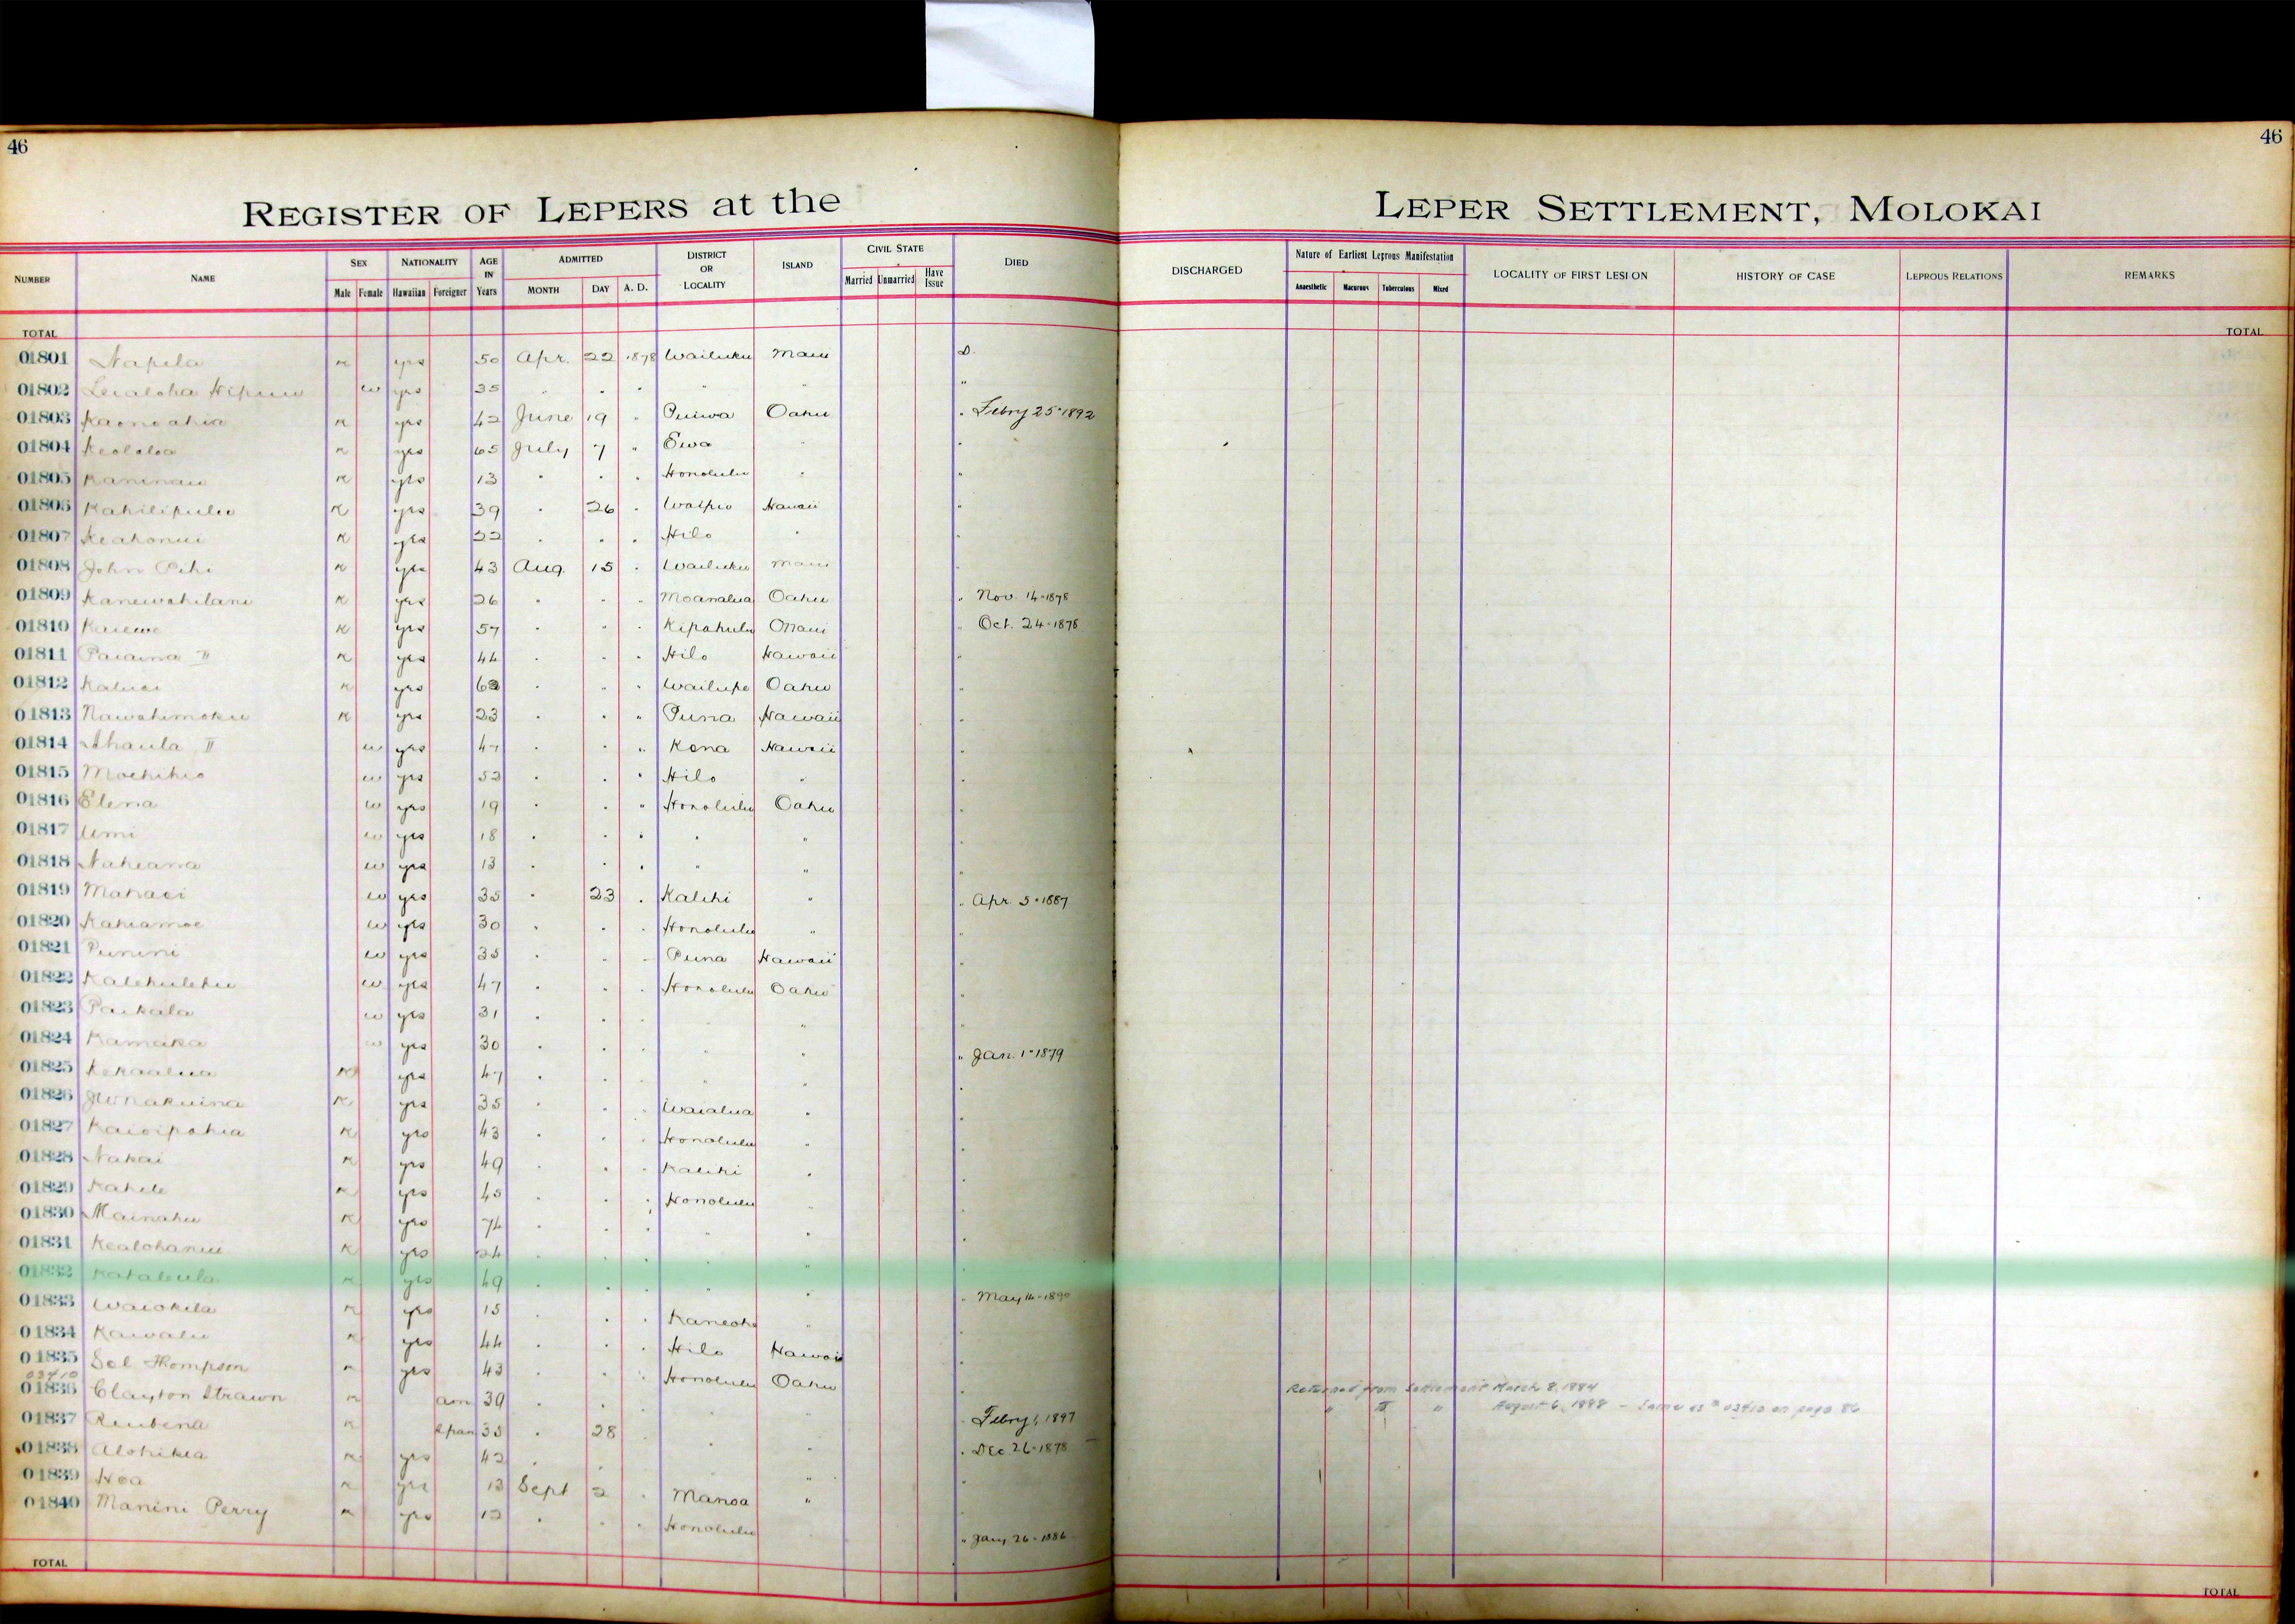 46
46
REGISTER OF LEPERS at the LEPER SETTLEMENT, MOLOKAI
NUMBER NAME SEX Male Female NATIONALITY Hawaiian Foreigner AGE IN Years ADMITTED MONTH DAY A. D. DISTRICT OR LOCALITY ISLAND CIVIL STATE Married Unmarried Have Issue DIED DISCHARGED Nature of Earliest Leprous Manifestation Anaesthetic Macurous Tuberculous Mixed LOCALITY OF FIRST LESION HISTORY OF CASE LEPROUS RELATIONS REMARKS
TOTAL TOTAL
01801 Napela yes 50 Apr. 22 1878 Wailuku Maui D.
01802 Lealoha w yes 35 " " " " " "
01803 Kaonoahia yes 42 June 19 " Oahu " Febry 25-1892
01804 Keololoa yes 65 July 7 " Ewa " "
01805 Kaninau yes 13 " " " Honolulu " "
01806 Kahilipulu yes 39 " 26 " Waipio Hawaii "
01807 Keahonui yes 22 " " " Hilo " "
01808 John yes 43 Aug. 15 " Wailuku Maui "
01809 Kanewahilani yes 26 " " " Moanalua Oahu " Nov. 14-1878
01810 Kaiewe yes 57 " " " Kipahulu Maui " Oct. 24-1878
01811 Paiaina II yes 44 " " " Hilo Hawaii "
01812 Kaluai yes " " " Wailupe Oahu "
01813 Nawahimoku yes 23 " " " Puna Hawaii "
01814 Ahaula II w yes 47 " " " Kona Hawaii "
01815 w yes 52 " " " Hilo " "
01816 Elena w yes 19 " " " Honolulu Oahu "
01817 Umi w yes 18 " " " " " "
01818 Naheana w yes 13 " " " " " "
01819 Mahaei w yes 35 " 23 " Kalihi " " Apr. 5-1887
01820 Kahiamoe w yes 30 " " " Honolulu " "
01821 Punini w yes 35 " " " Puna Hawaii "
01822 Kalehulehu w yes 47 " " " Honolulu Oahu "
01823 Paikala w yes 31 " " " " "
01824 Kamaka w yes 30 " " " " " Jan. 1-1879
01825 Kekaalua yes 47 " " " " "
01826 yes 35 " " " Waialua " "
01827 Kaioipahia yes 43 " " " Honolulu " "
01828 Nakai yes 49 " " " Kalihi " "
01829 Kahele yes 45 " " " Honolulu " "
01830 Mainahu yes 74 " " " " " "
01831 Kealohanui yes 24 " " " " "
01832 yes 49 " " " " " May 14-1890
01833 Waiohila yes 15 " " " Kaneohe " "
01834 Kawalu yes 44 " " " Hilo Hawaii "
01835 Sol Thompson yes 43 " " " Honolulu Oahu "
03410
01836 Clayton Strawn am 39 " " " " Febry 1, 1897 Returned from Settlement March 8, 1884
" " " August 6, 1888 - Same as # 03410 on page 86
01837 Reubena Span 35 " 28 " " " Dec 26-1878
01838 Alohikea yes 42 " " " "
01839 Hoa yes 13 Sept 2 " Manoa " "
01840 Manini Perry yes 12 " " " Honolulu " Jany 26-1886
TOTAL TOTAL